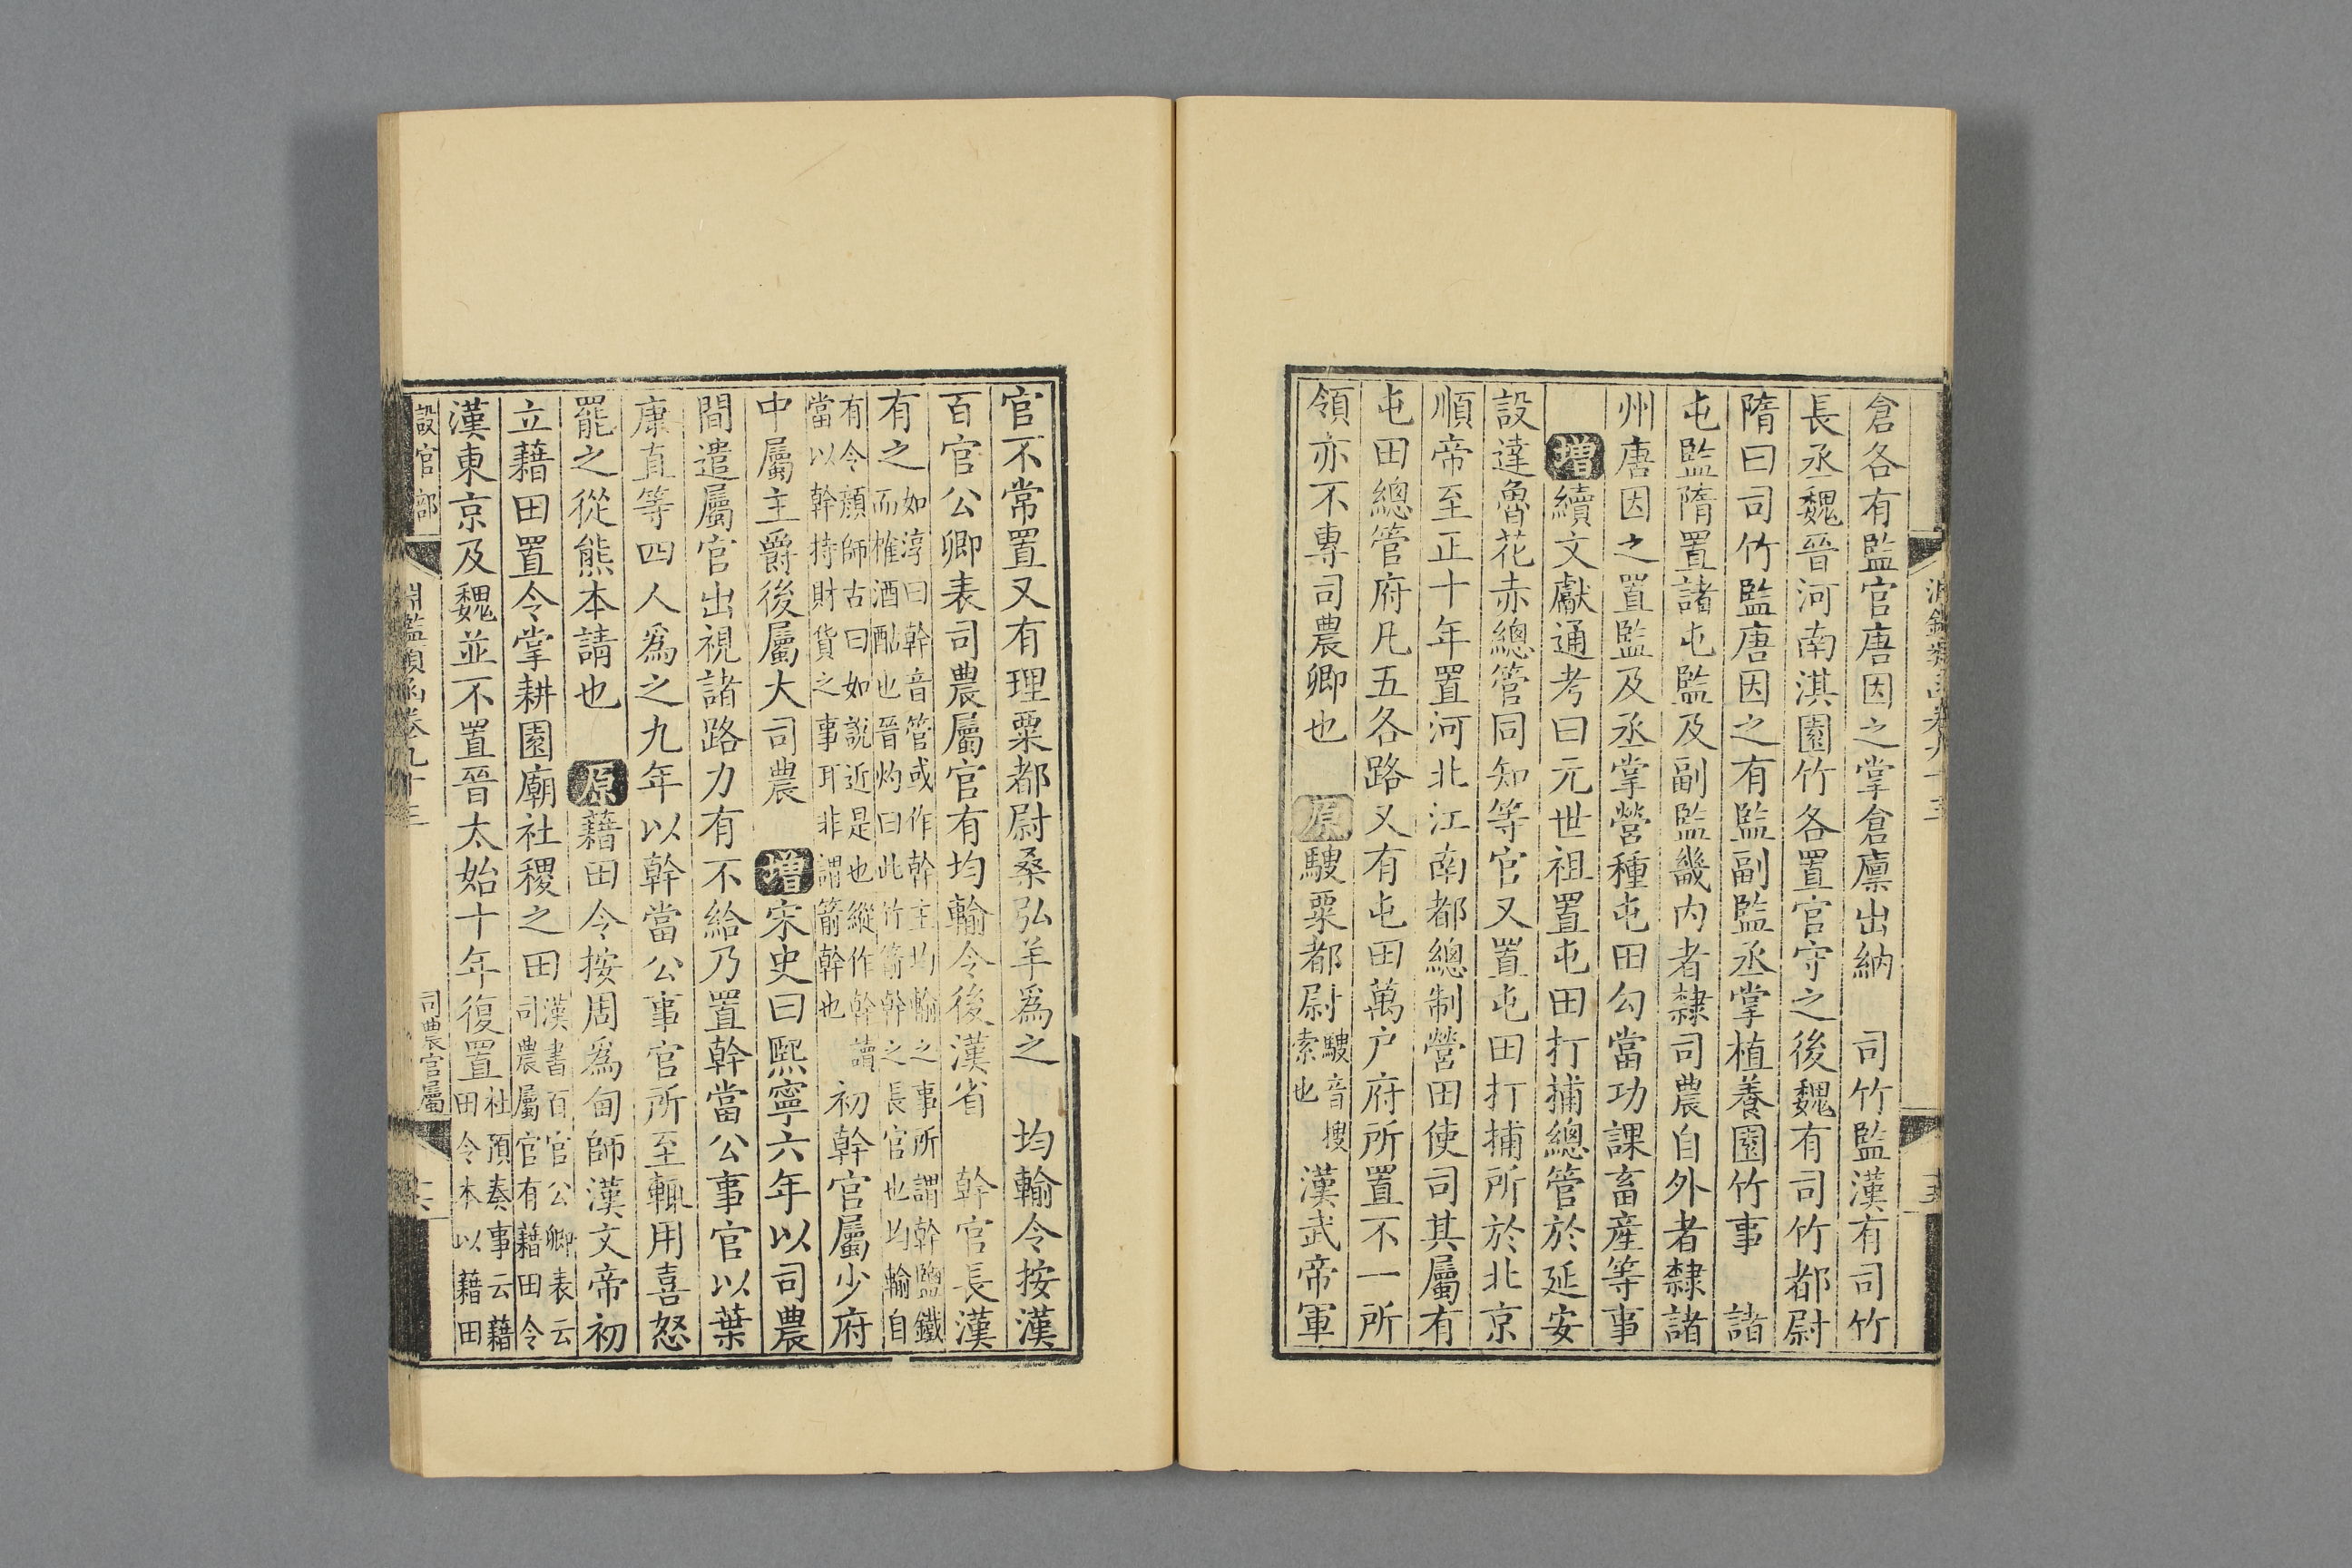 倉各有監官唐因之掌倉廩出納　司竹監漢有司竹
長丞魏晉河南淇園竹各置官守之後魏有司竹都尉
隋曰司竹監唐因之有監副監丞掌植養園竹事　諸
屯監隋置諸屯監及副監畿内者隸司農自外者隸諸
州唐因之置監及丞掌營種屯田勾當功課畜産等事
增續文獻通考曰元世祖置屯田打捕總管於延安
設達魯花赤總管同知等官又置屯田打捕所於北京
順帝至正十年置河北江南都總制營田使司其屬有
屯田總管府凡五各路又有屯田萬户府所置不一所
領亦不專司農卿也　原騪粟都尉騪音搜索也漢武帝軍
官不常置又有理粟都尉桑弘羊爲之　均輸令按漢
百官公卿表司農屬官有均輸令後漢省　幹官長漢
有之如淳曰幹音管或作幹主均輸之事所謂幹鹽鐵而榷酒酤也晉灼曰此竹箭幹之長官也均輸自
有令顔師古曰如説近是也縱作幹讀當以幹持財貨之事耳非謂箭幹也初幹官屬少府
中屬主爵後屬大司農　增宋史曰熙寧六年以司農
間遣屬官出視諸路力有不給乃置幹當公事官以葉
康直等四人爲之九年以幹當公事官所至輒用喜怒
罷之從熊本請也　原藉田令按周爲甸師漢文帝初
立藉田置令掌耕園廟社稷之田漢書百官公卿表云司農屬官有藉田令
漢東京及魏並不置晉太始十年復置社預奏事云藉田令本以藉田
設官部
淵鑑類函卷九十三
司農官屬